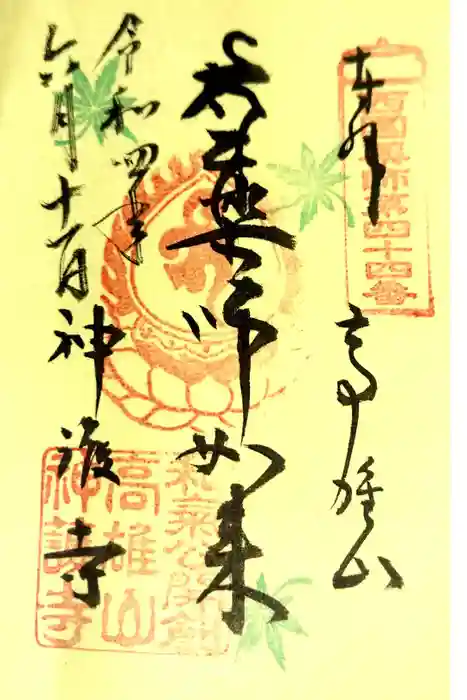 奉拝
高雄山
西国薬師第四十四番
薬師如来
令和四年
六月十一日
神護寺
和氣公開創
高雄山
神護寺